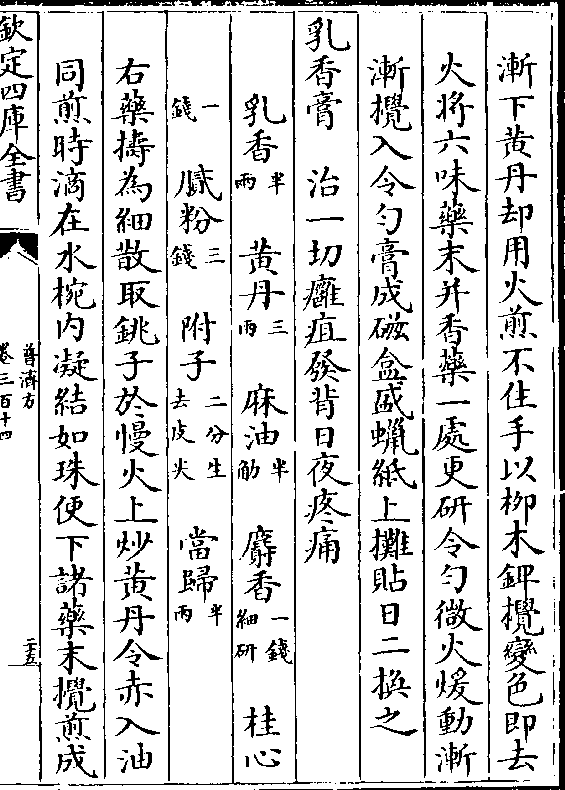 漸下黄丹却用火煎不住手以柳木錍攪變色即去
火将六味藥末并香藥一處更研令勻微火煖動漸
漸攪入令勻膏成磁盒盛蠟紙上攤貼日二換之
乳香膏　治一切癰疽發背日夜疼痛
乳香半兩　黄丹三兩　麻油半觔　麝香一錢細研　桂心
一錢　膩粉三錢　附子二分生去皮尖　當歸半兩
右藥擣為細散取銚子於慢火上炒黄丹令赤入油
同煎時滴在水椀内凝結如珠便下諸藥末攪煎成
欽定四庫全書
普濟方
卷三百十四
二五